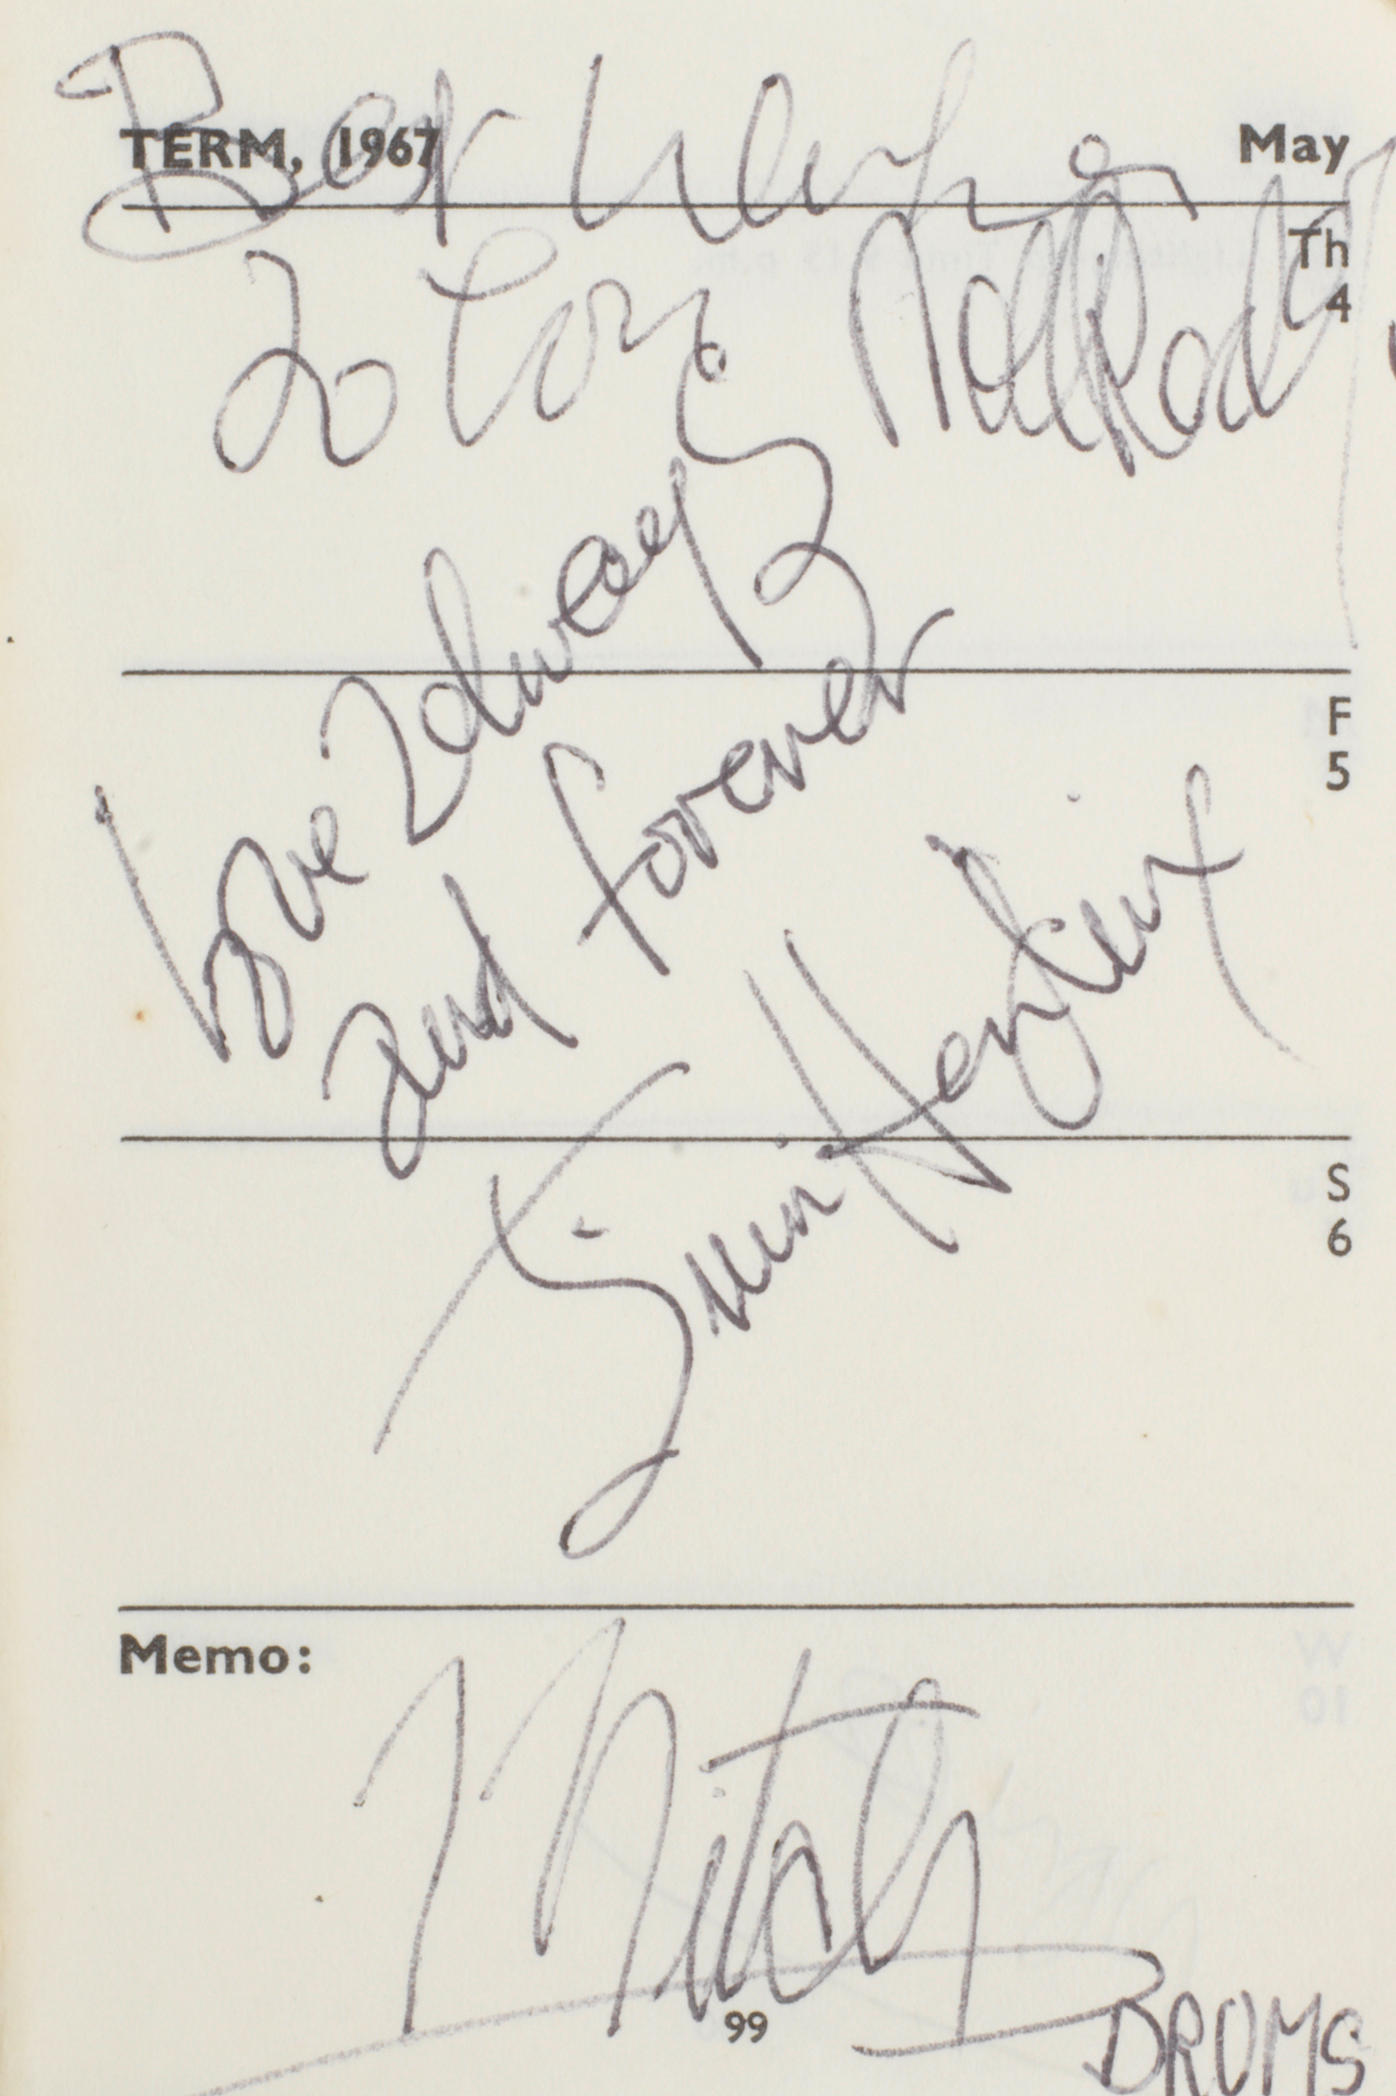 TERM, 1967 May
Best Wishes
To Lori Noel Redding
Th
4
love always
and forever
F
5
Jimi Hendrix
S
6
Memo:
Mitch
DRUMS
99